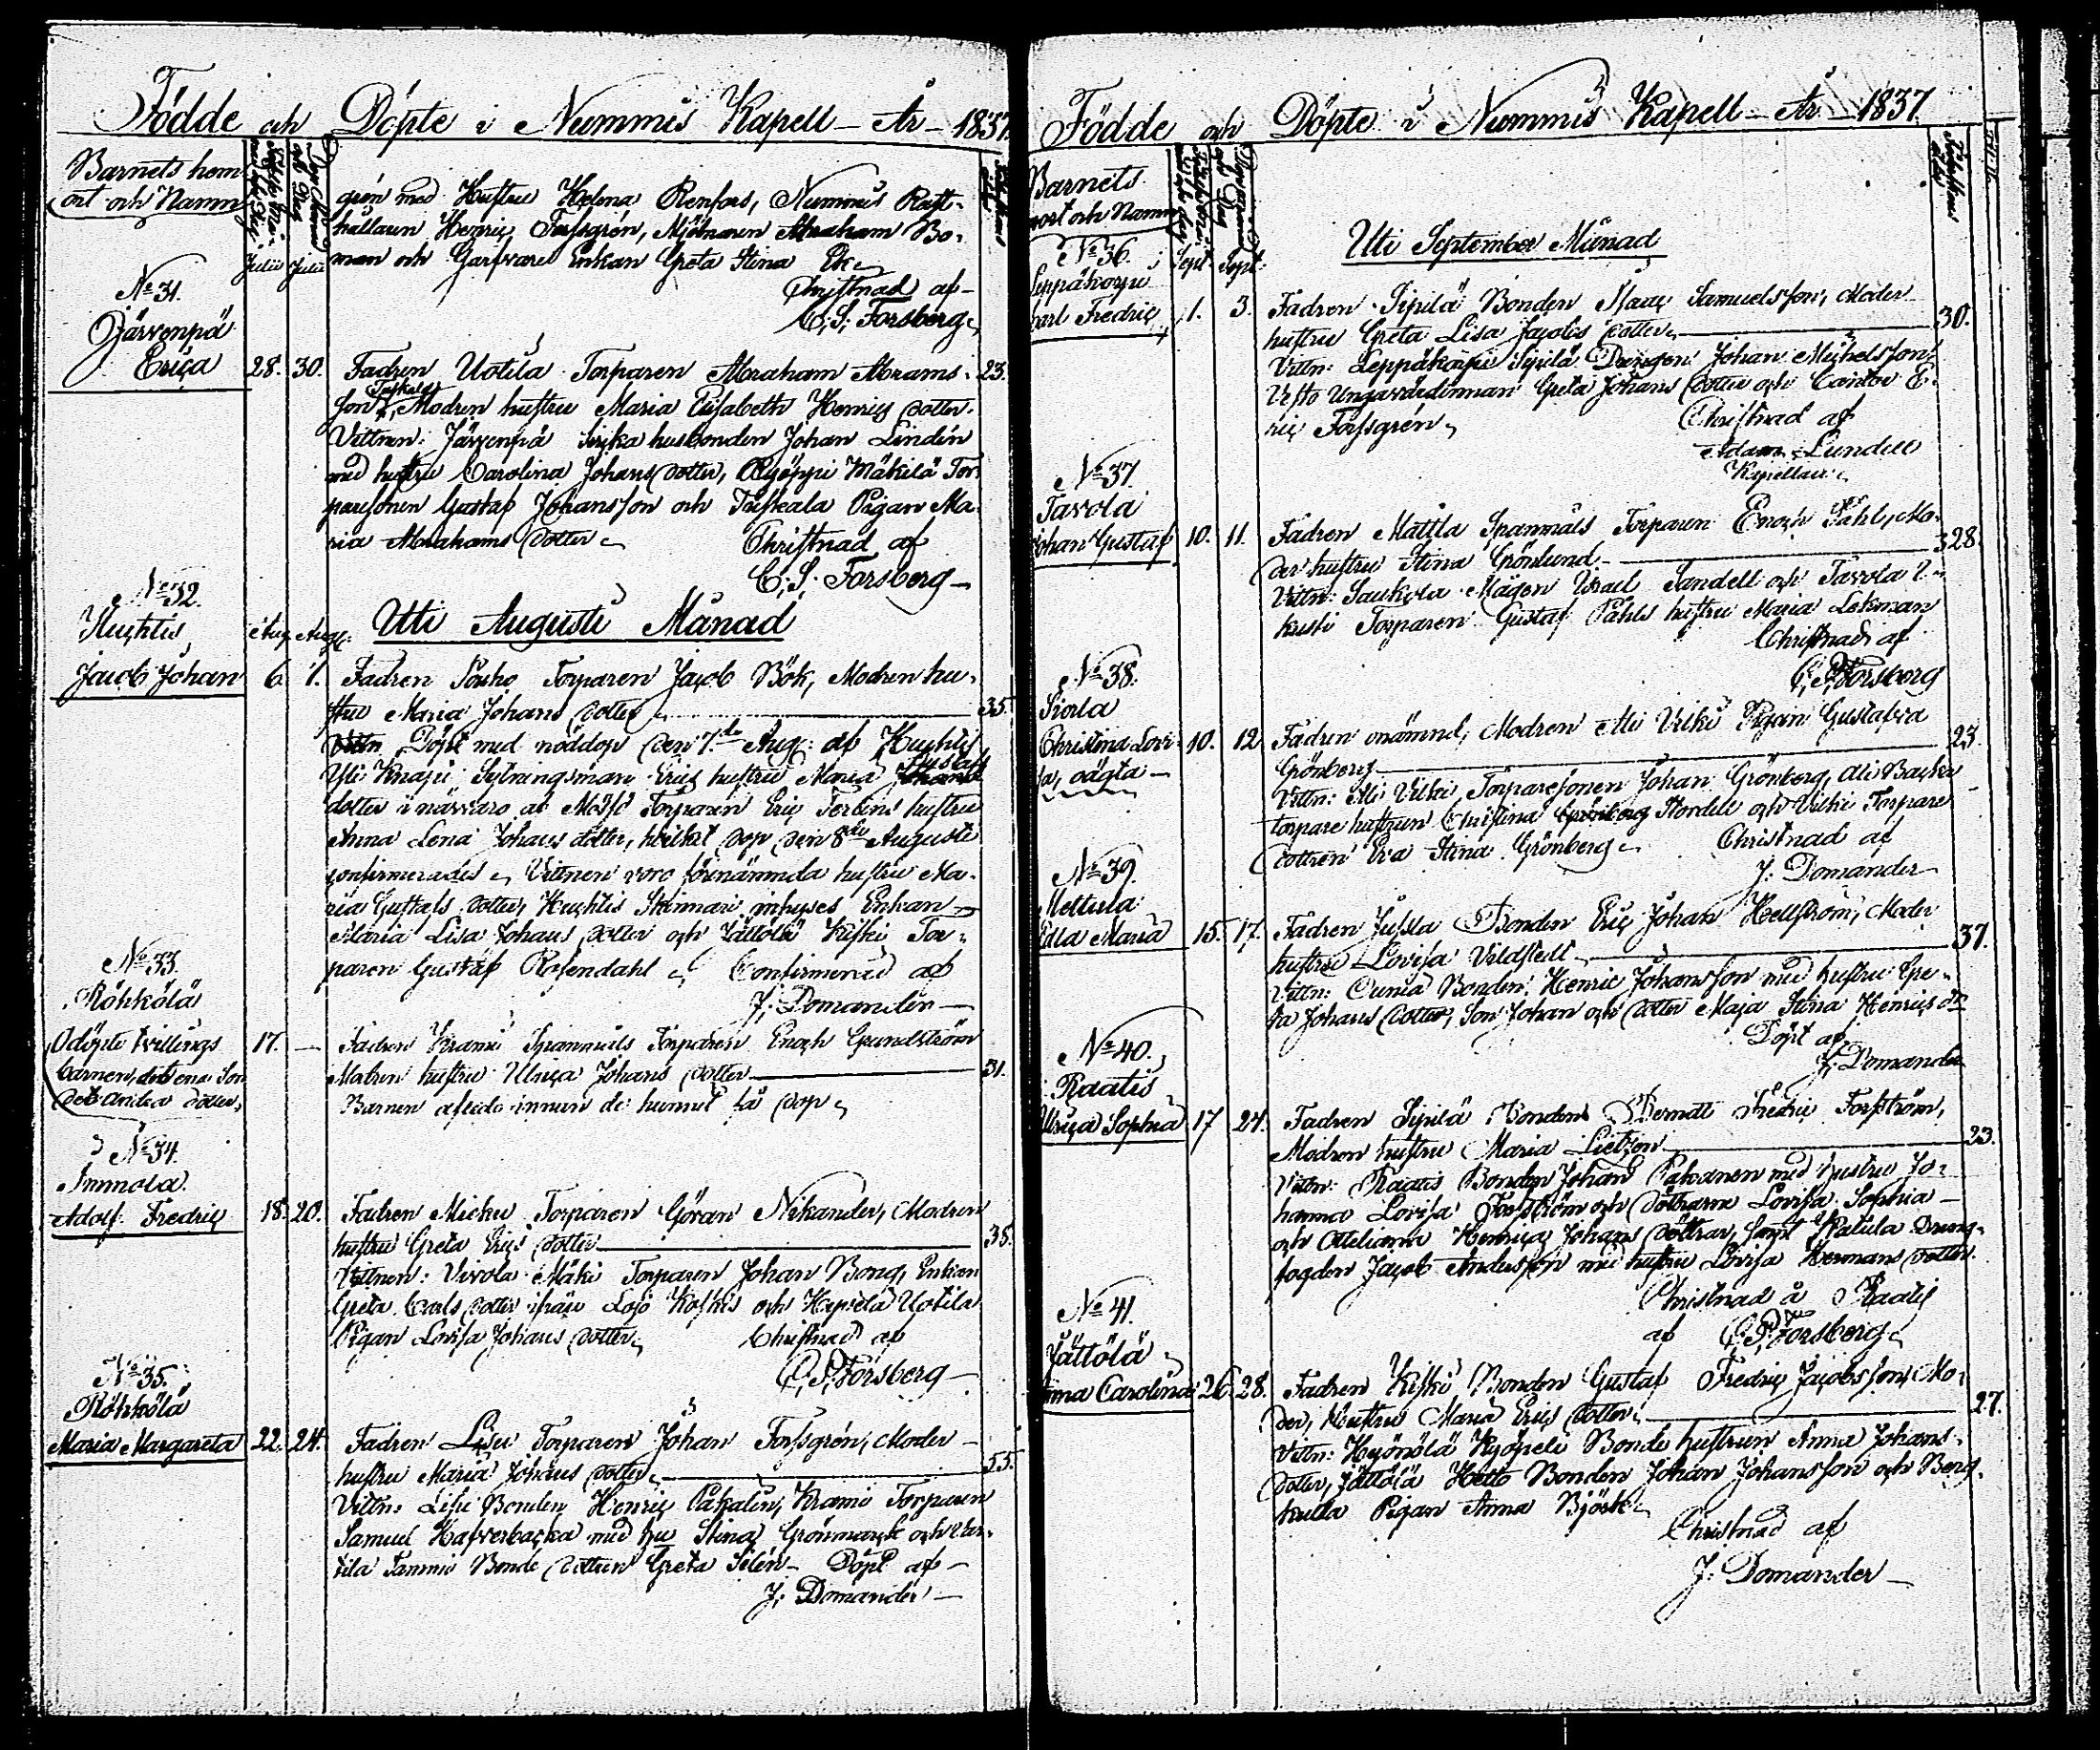 Födde och Döpte i Nummis Kapell - År - 1837.
Barnets hem-
ort och Namn
grén med Hustru Helena Renfors, Nummis Rust-
hållaren Henric Forssgrén, Mjölnaren Abraham Bo-
man och Garfvare Enkan Greta Stina Ek
Christnad af
C. S. Forsberg
Julii Julii
No 31.
Järvenpä
Erica 28. 30. Fadren Uotila Torparen Abraham Abrams- 23.
son, Modren hustru Maria Elisabeth Henrics dotter.
Vittnen: Järvenpä husbonden Johan Lindén
med hustru Carolina Johans dotter, Mäkilä Tor-
paresonen Gustaf Johansson och Pigan Ma-
ria Abrahams dotter Christnad af
C. S. Forsberg
Uti Augusti Månad
No 32.
Huhtis Aug. Aug.
Jacob Johan 6. 7. Fadren Torparen Jacob Bök, Modren hu-
stru Maria Johans dotter 35.
Vittn Döpt med nöddop den 7de Aug: af Huhtis
Yli Knapi Sytningsman Erics hustru Maria Johans Gustafs
dotter i närvaro af Torparen Eric hustru
Anna Lena Johans dotter, hvilket dop den 8de Augusti
confirmerades. Vittnen voro förenämnda hustru Ma-
ria Gustafs dotter, Huhtis inhyses Enkan
Maria Lisa Johans dotter och Jättölä Kiski Tor-
paren Gustaf Rosendahl Confirmerad af
J. Domander
No 33.
Röhkölä
Odöpte tvillings 17. — Fadren Krami Torparen Enoch Grundström
barnen, det ena Son Modren hustru Ulrica Johans dotter 31.
det andra dotter, Barnen afledo innan de hunnit få dop
No 34.
Immola
Adolf Fredric 18. 20. Fadren Micku Torparen Göran Nikander, Modren
hustru Greta Erics dotter 38.
Vittnen: Vivola Mäki Torparen Johan Bong, Enkan
Greta Carls dotter ifrån Lojo och Uotila
Pigan Lovisa Johans dotter Christnad af
C. S. Forsberg
No 35.
Röhkölä
Maria Margareta 22. 24. Fadren Lisu Torparen Johan Forssgrén, Moder
hustru Maria Johans dotter 55.
Vittn: Lisu Bonden Henric Krami Torparen
Samuel Hafverbacka med hu Stina Grönmarck och Var-
tila Tammi Bonde dottern Greta Silén - Döpt af
J. Domander
Födde och Döpte i Nummis Kapell - År 1837.
Barnets
ort och Namn
Uti September Månad
No 36. Sept. Sept.
Leppäkorpi
Carl Fredric 1. 3. Fadren Sipilä Bonden Isaac Samuelsson, Moder 30.
hustru Greta Lisa Jacobs dotter
Vittn: Leppäkorpi Sipilä Drängen Johan Michelsson,
Greta Johans dotter och Cantor E-
ric Forssgrén Christnad af
Adam Lundell
Kapellan
No 37.
Tavola
Johan Gustaf 10. 11. Fadren Mattila Spannmåls Torparen Enoch Påhl, Mo- 28.
der hustru Stina Grönlund
Vittn: Saukola Mågen Israel Sandell och Tavola
Torparen Gustaf Påhls hustru Maria Lekman
Christnad af
C. S. Forsberg
No 38.
Siola
Christina Lovi- 10. 12. Fadren onämnd, Modren Ali Vilki Pigan Gustafva 23.
sa, oägta Grönberg
Vittn: Ali Vilki Torparesonen Johan Grönberg, Ali Backa
torpare hustrun Christina Grönberg Nordell och Vilki Torpare
dottren Eva Stina Grönberg Christnad af
J. Domander
No 39.
Mettula
Edla Maria 15. 17. Fadren Jussla Bonden Eric Johan Hellström, Moder
hustru Lovisa 37.
Vittn: Bonden Henric Johansson med hustru Gre-
ta Johans dotter, Son Johan och dotter Maja Stina Henrics dr
Döpt af
J. Domander
No 40.
Raatis
Ulrica Sophia 17 24. Fadren Sipilä Bonden Berndt Fredric Forsström,
Modren hustru Maria Lietzon 23.
Vittn: Raatis Bonden Johan med hustru Jo-
hanna Lovisa Forsström och döttrarna Lovisa Sophia
och Ottiliana Henrica Johans döttrar, samt Dräng-
fogden Jacob Andersson med hustru Lovisa Hermans dotter.
Christnad å Raatis
af C. S. Forsberg
No 41.
Jättölä
Anna Carolina 26. 28. Fadren Kiski Bonden Gustaf Fredric Jacobsson, Mo-
der, Hustru Maria Erics dotter 27.
Vittn: Hyönölä Bonde hustrun Anna Johans-
dotter, Jättölä Hetto Bonden Johan Johansson och Berg-
kulla Pigan Anna Björk
Christnad af
J. Domander